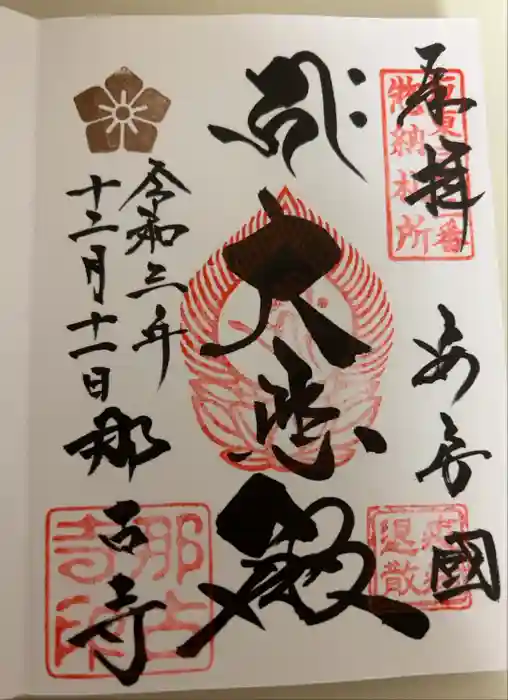 奉拝
安房國
大悲殿
令和三年
十二月十一日
那古寺
惣納札所
番
退散
那古寺印